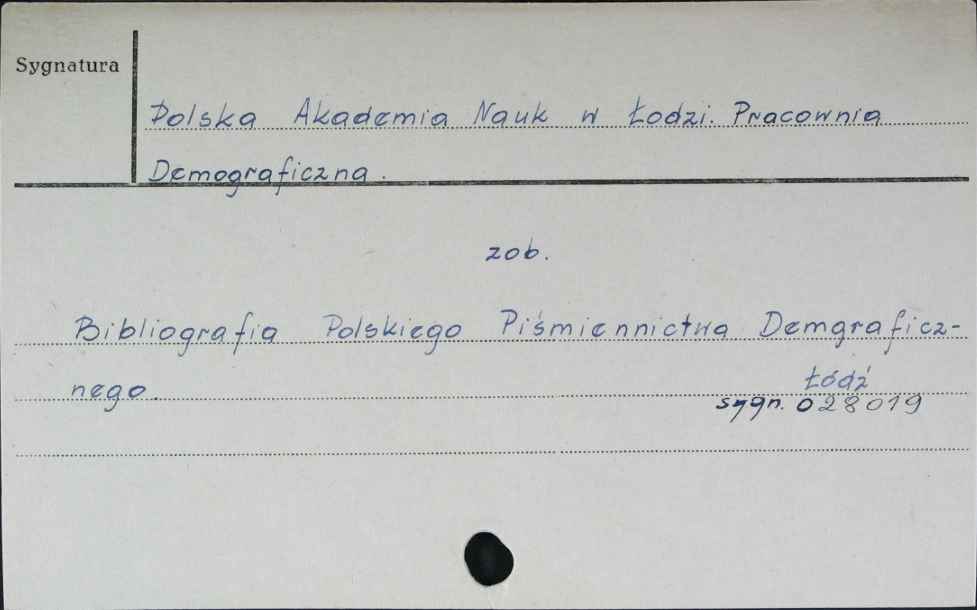 Sygnatura
Polska Akademia Nauk w Łodzi. Pracownia
Demograficzna.
zob.
Bibliografia Polskiego Piśmiennictwa Demgraficz-
nego.
Łódź
sygn. 028019